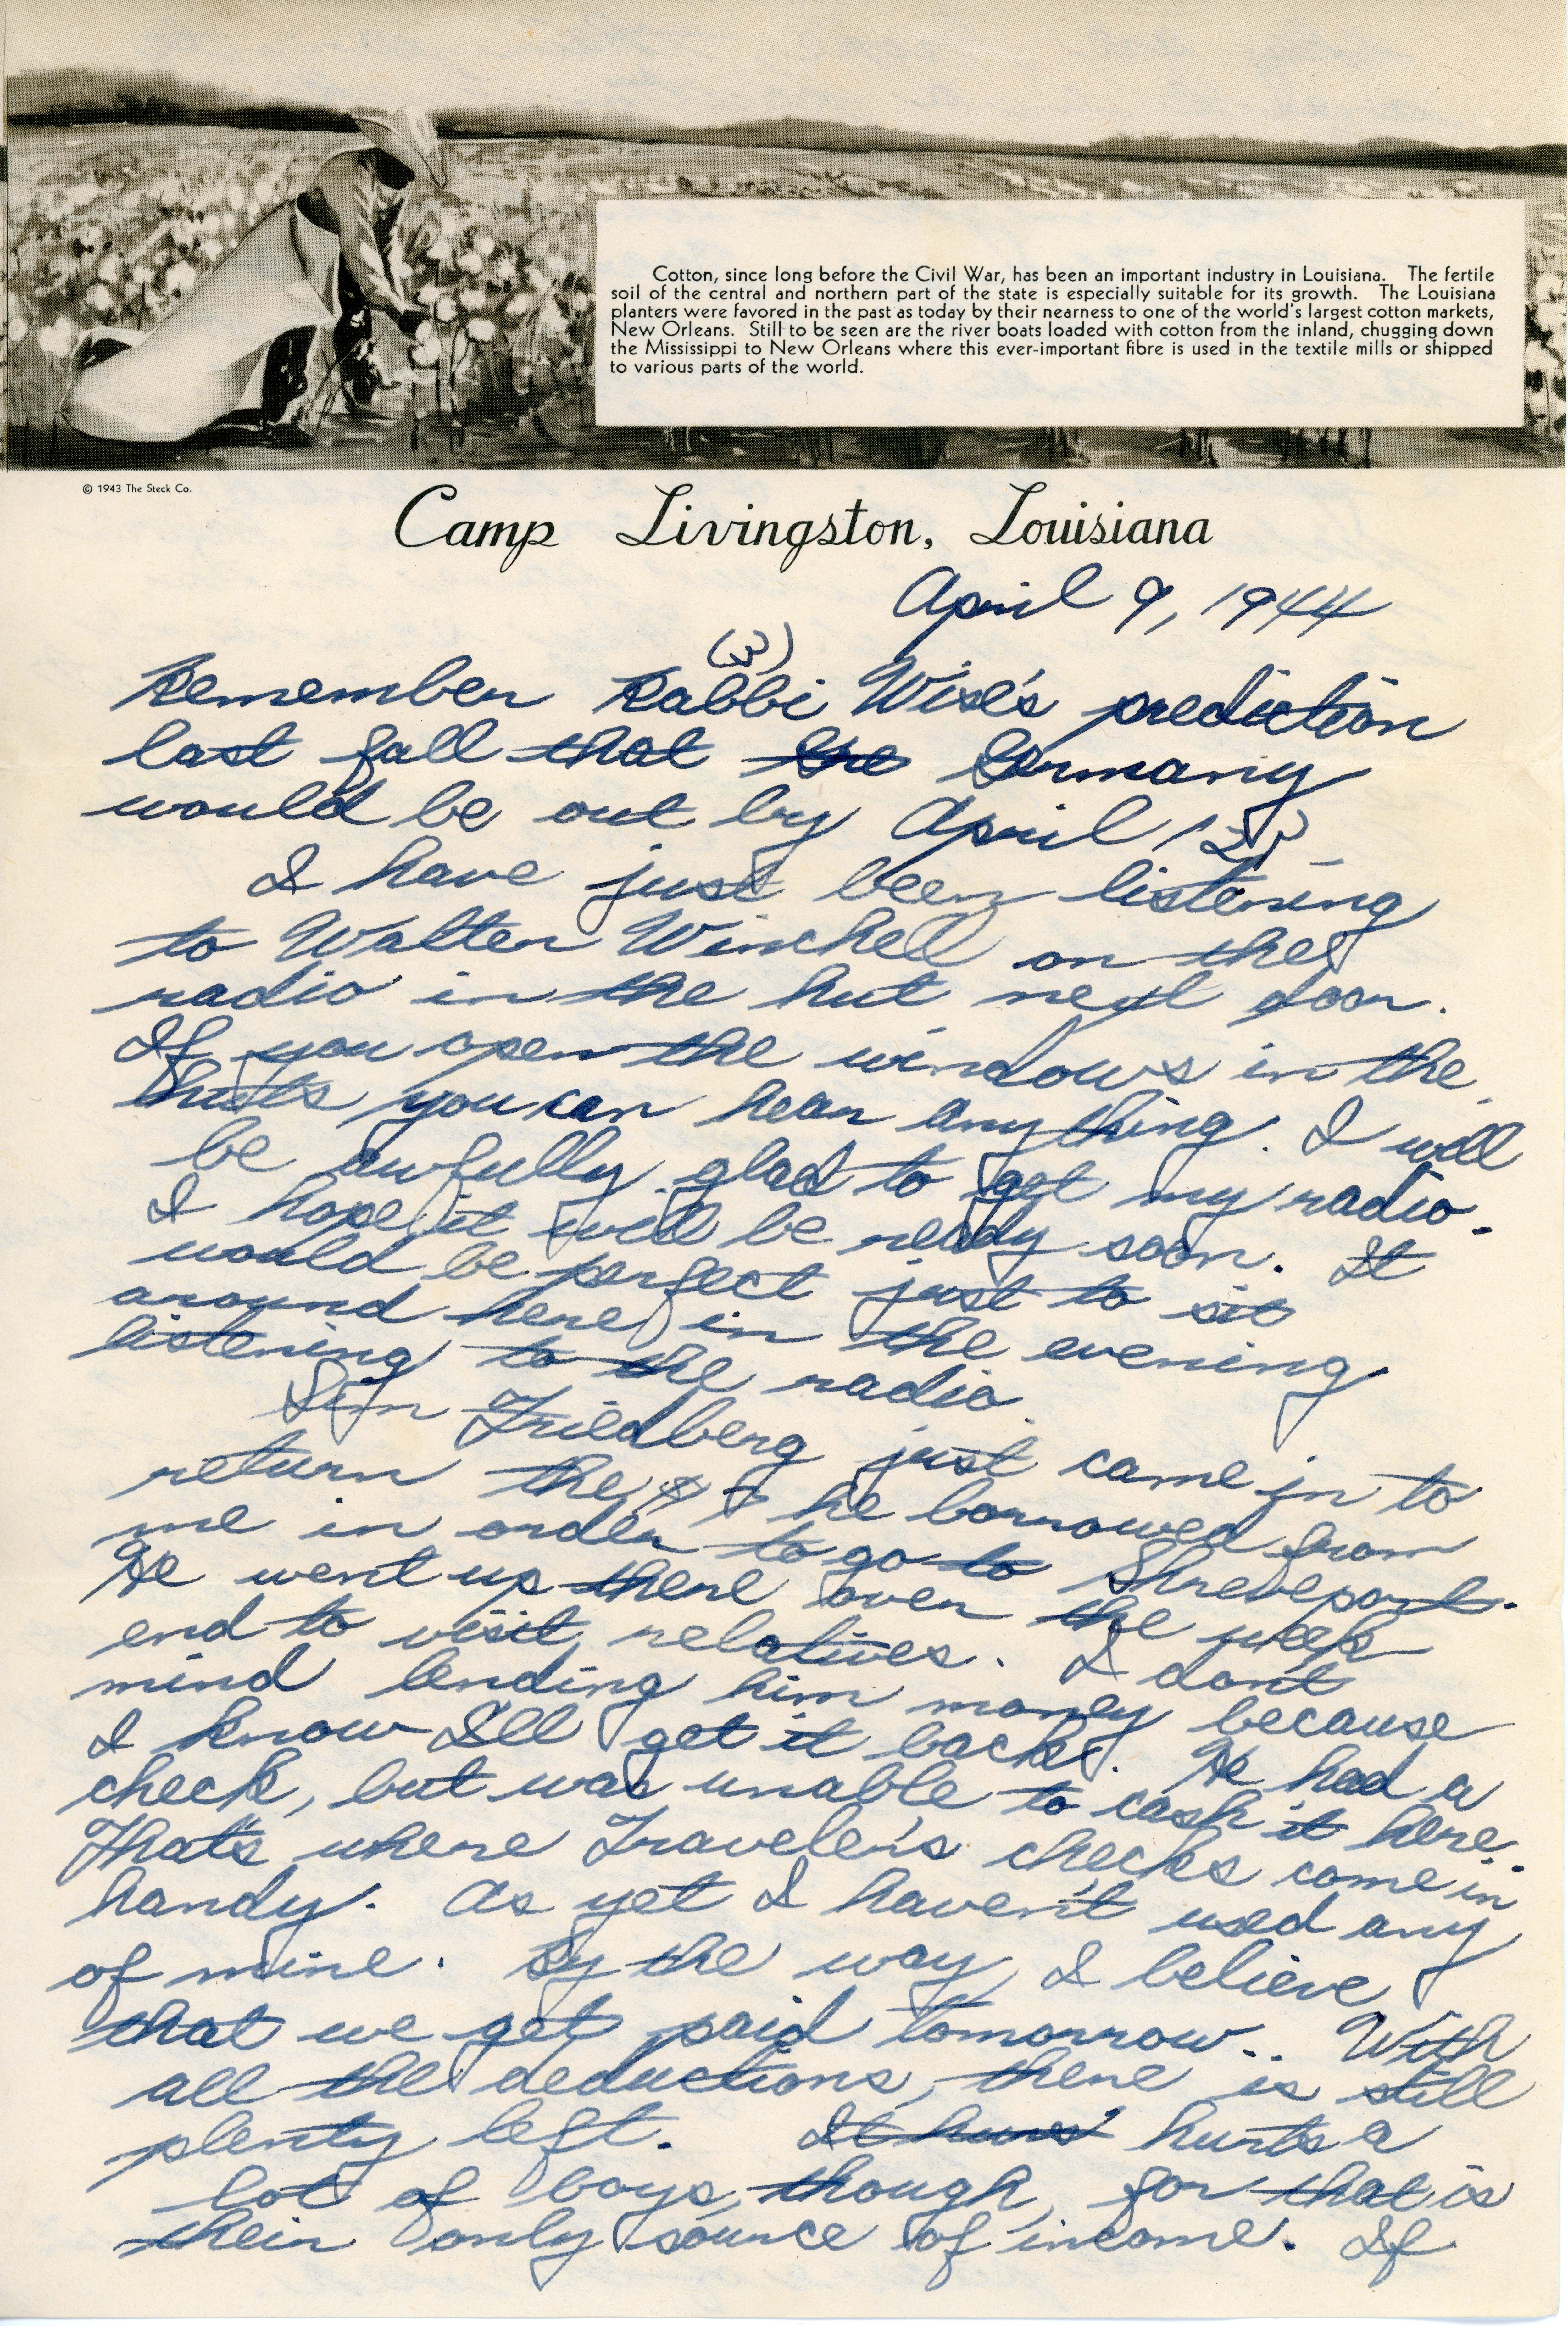 Cotton, since long before the Civil War, has been an important industry in Louisiana. The fertile
soil of the central and northern part of the state is especially suitable for its growth. The Louisiana
planters were favored in the past as today by their nearness to one of the world's largest cotton markets,
New Orleans. Still to be seen are the river boats loaded with cotton from the inland, chugging down
the Mississippi to New Orleans where this ever-important fibre is used in the textile mills or shipped
to various parts of the world.
© 1943 The Steck Co.
Camp Livingston, Louisiana
April 9, 1944
(3)
Remember Rabbi Wise's prediction
last fall that the Germany
would be out by April 1
I have just been listening
to Walter Winchell on the
radio in the hut next door.
If you open the windows in the
huts you can hear anything. I will
be awfully glad to get my radio.
I hope it will be ready soon. It
would be perfect just to sit
around here in the evening
listening to the radio.
Sim Friedberg just came in to
return the he borrowed from
me in order to go to Shreveport.
He went up there over the week
end to visit relatives. I dont
mind lending him money because
I know I'll get it back. He had a
check, but was unable to cash it here.
That's where Traveler's checks come in
handy. As yet I haven't used any
of mine. By the way, I believe
that we get paid tomorrow.. With
all the deductions, there is still
plenty left. It hurts a
lot of boys, though, for that is
their only source of income. If